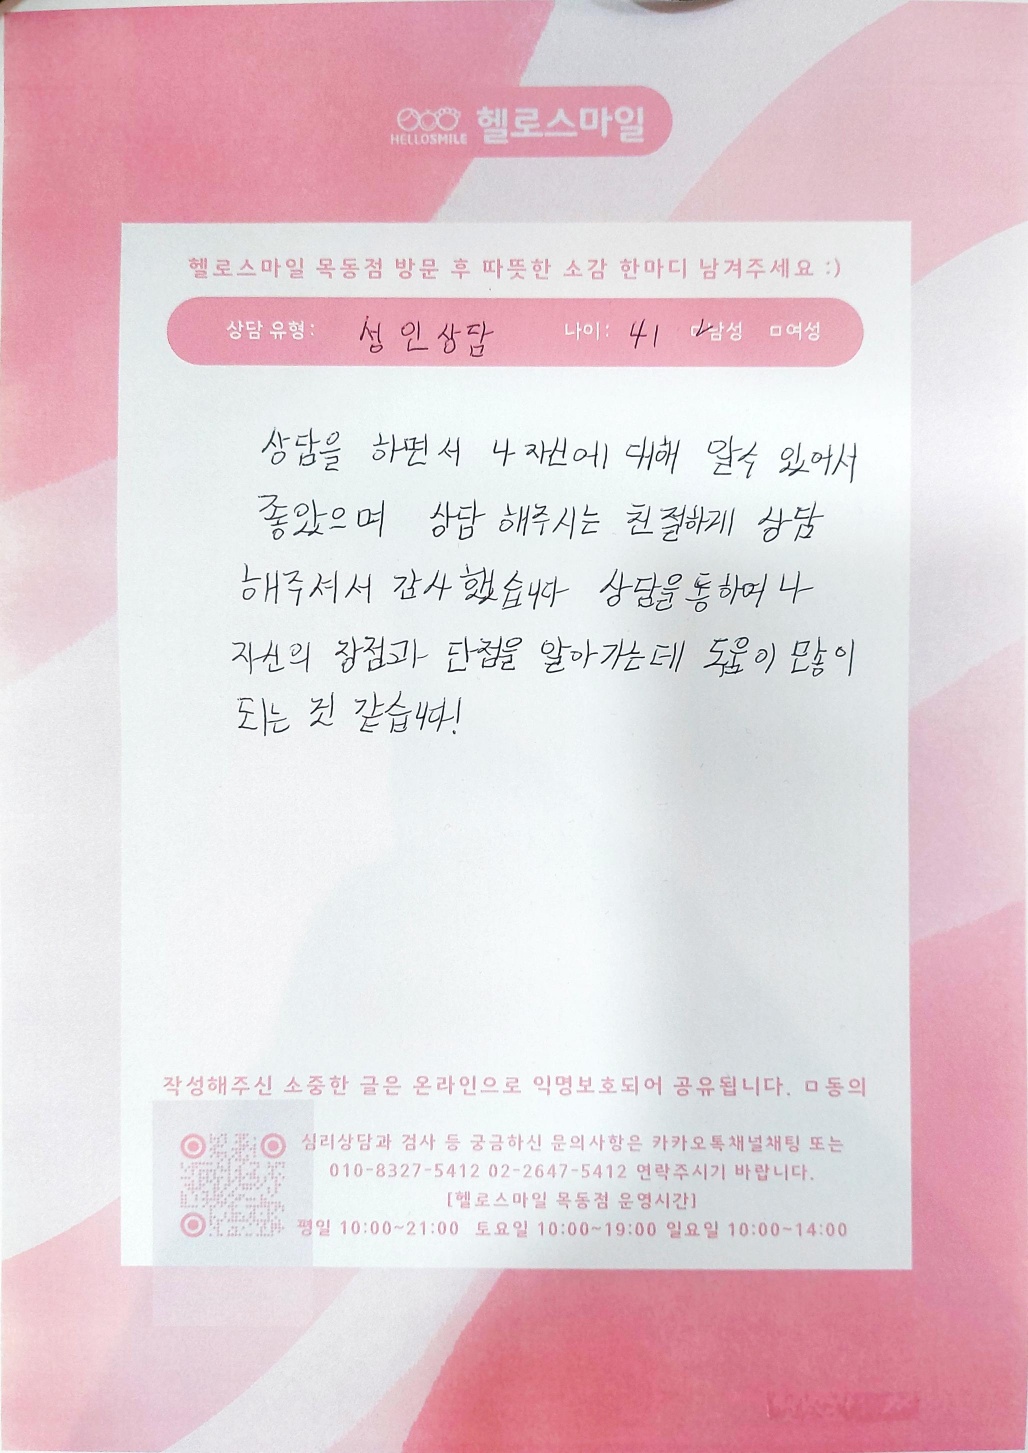 HELLOSMILE 헬로스마일
헬로스마일 목동점 방문 후 따뜻한 소감 한마디 남겨주세요 :)
상담 유형: 성인상담 나이: 41 ☑남성 □여성
상담을 하면서 나 자신에 대해 알수 있어서
좋았으며 상담 해주시는 친절하게 상담
해주셔서 감사했습니다 상담을통하여 나
자신의 장점과 단점을 알아가는데 도움이 많이
되는 것 같습니다!
작성해주신 소중한 글은 온라인으로 익명보호되어 공유됩니다. □동의
심리상담과 검사 등 궁금하신 문의사항은 카카오톡채널채팅 또는
010-8327-5412 02-2647-5412 연락주시기 바랍니다.
[헬로스마일 목동점 운영시간]
평일 10:00~21:00 토요일 10:00~19:00 일요일 10:00~14:00